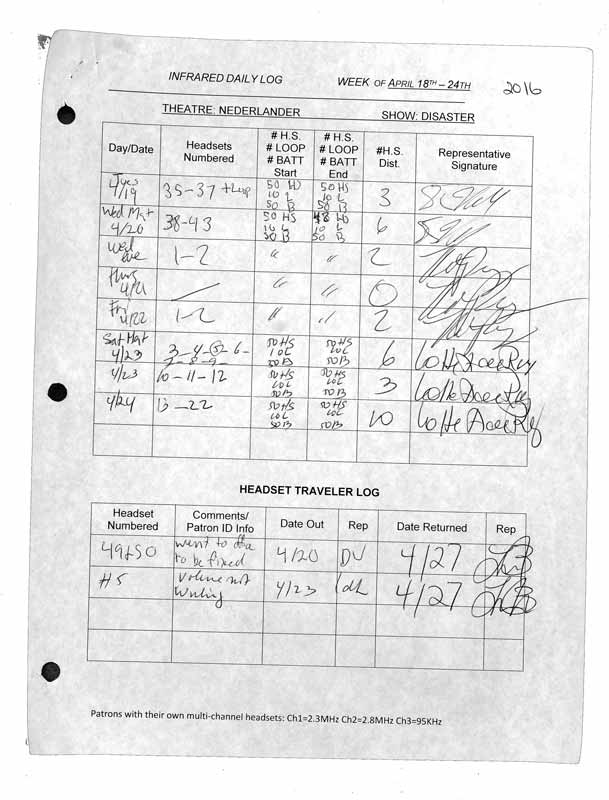 INFRARED DAILY LOG WEEK OF APRIL 18TH – 24TH 2016
THEATRE: NEDERLANDER SHOW: DISASTER
Day/Date Headsets Numbered # H.S. # LOOP # BATT Start # H.S. # LOOP # BATT End #H.S. Dist. Representative Signature
4/19 35-37 + Loop 50 HS 10 L 50 B 50 HS 10 L 50 B 3
Wed Mat 4/20 38-43 50 HS 10 L 50 B 48 HS 10 L 50 B 6
Wed eve 1-2 " " 2
Thurs 4/21 / " " 0
Fri 4/22 1-2 " " 2
Sat Mat 4/23 3-4-5-6-7-8-9- 50 HS 10L 50B 50 HS 10L 50B 6
4/23 10-11-12 50 HS 10L 50B 50 HS 10L 50B 3
4/24 13-22 50 HS 10L 50B 50 HS 10L 50B 10
HEADSET TRAVELER LOG
Headset Numbered Comments/ Patron ID Info Date Out Rep Date Returned Rep
49+50 went to to be fixed 4/20 DV 4/27
#5 Volume not Working 4/23 4/27
Patrons with their own multi-channel headsets: Ch1=2.3MHz Ch2=2.8MHz Ch3=95KHz